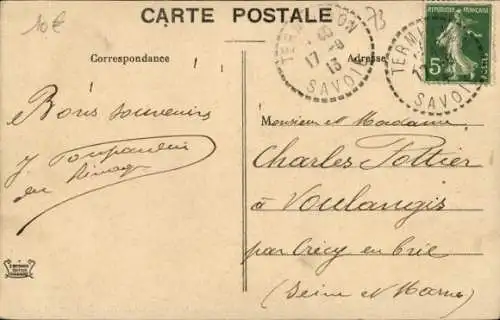 10€
CARTE POSTALE
73
Correspondance
Adresse
TERMIGNON
17-9
13
SAVOIE
TERMI
SAVOIE
RÉPUBLIQUE FRANÇAISE
5c
POSTES
Bons souvenirs
J.
du
Monsieur et Madame
Charles Pottier
à Voulangis
par Crécy en Brie
(Seine et Marne)